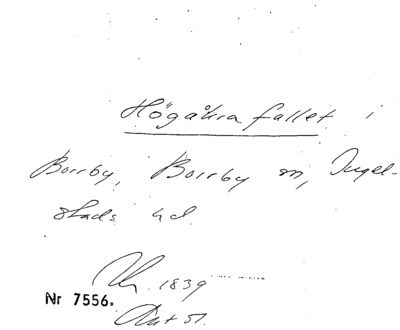 Högakra fallet i
Borrby, Borrby sn, Ingel-
stads hd
1839
Nr 7556.